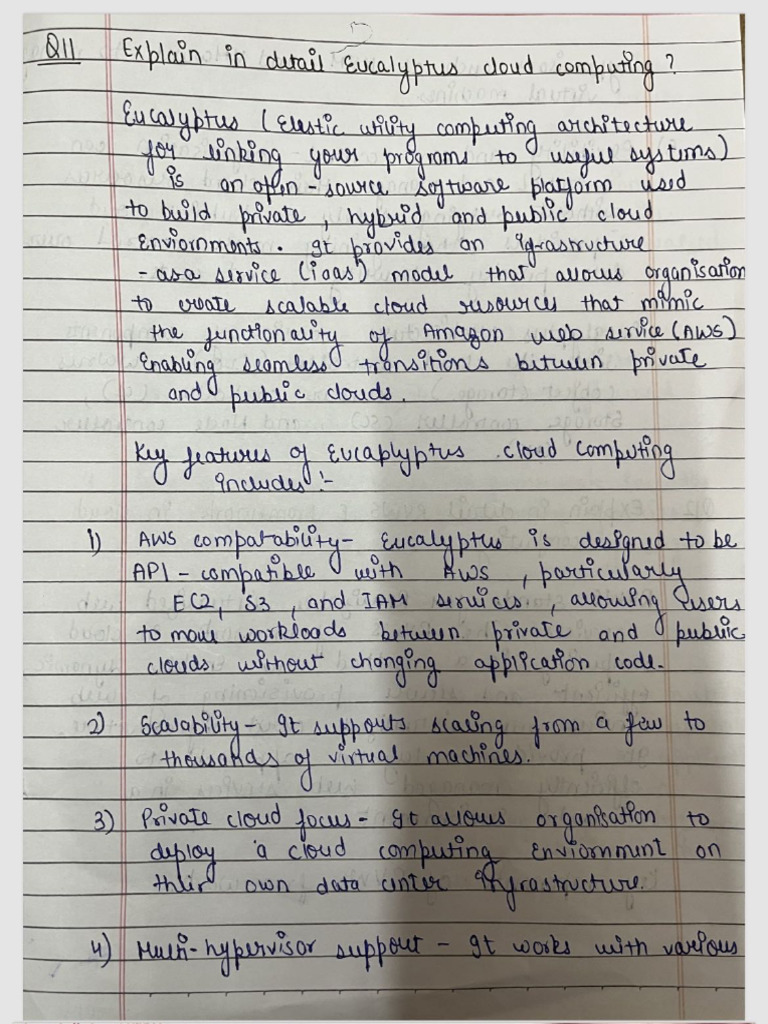 Q11. Explain in detail Eucalyptus cloud computing ?
Eucalyptus ( Elestic utility computing architecture
for linking your programs to useful systems)
is an open - source software platform used
to build private , hybrid and public cloud
Enviornments . It provides an infrastructure
- as a service (ioas) model that allows organisation
to create scalable cloud resources that mimic
the functionality of Amazon web service (AWS)
Enabling seamless transitions between private
and public clouds.
Key features of Eucaplyptus cloud computing
includes :-
1) AWS compatability - Eucalyptus is designed to be
API - compatible with AWS , particularly
EC2, S3 , and IAM services , allowing users
to move workloads between private and public
clouds without changing application code.
2) Scalability - It supports scaling from a few to
thousands of virtual machines.
3) Private cloud focus - It allows organisation to
deploy a cloud computing Enviornment on
their own data center infrastructure.
4) Multi-hypervisor support - It works with various